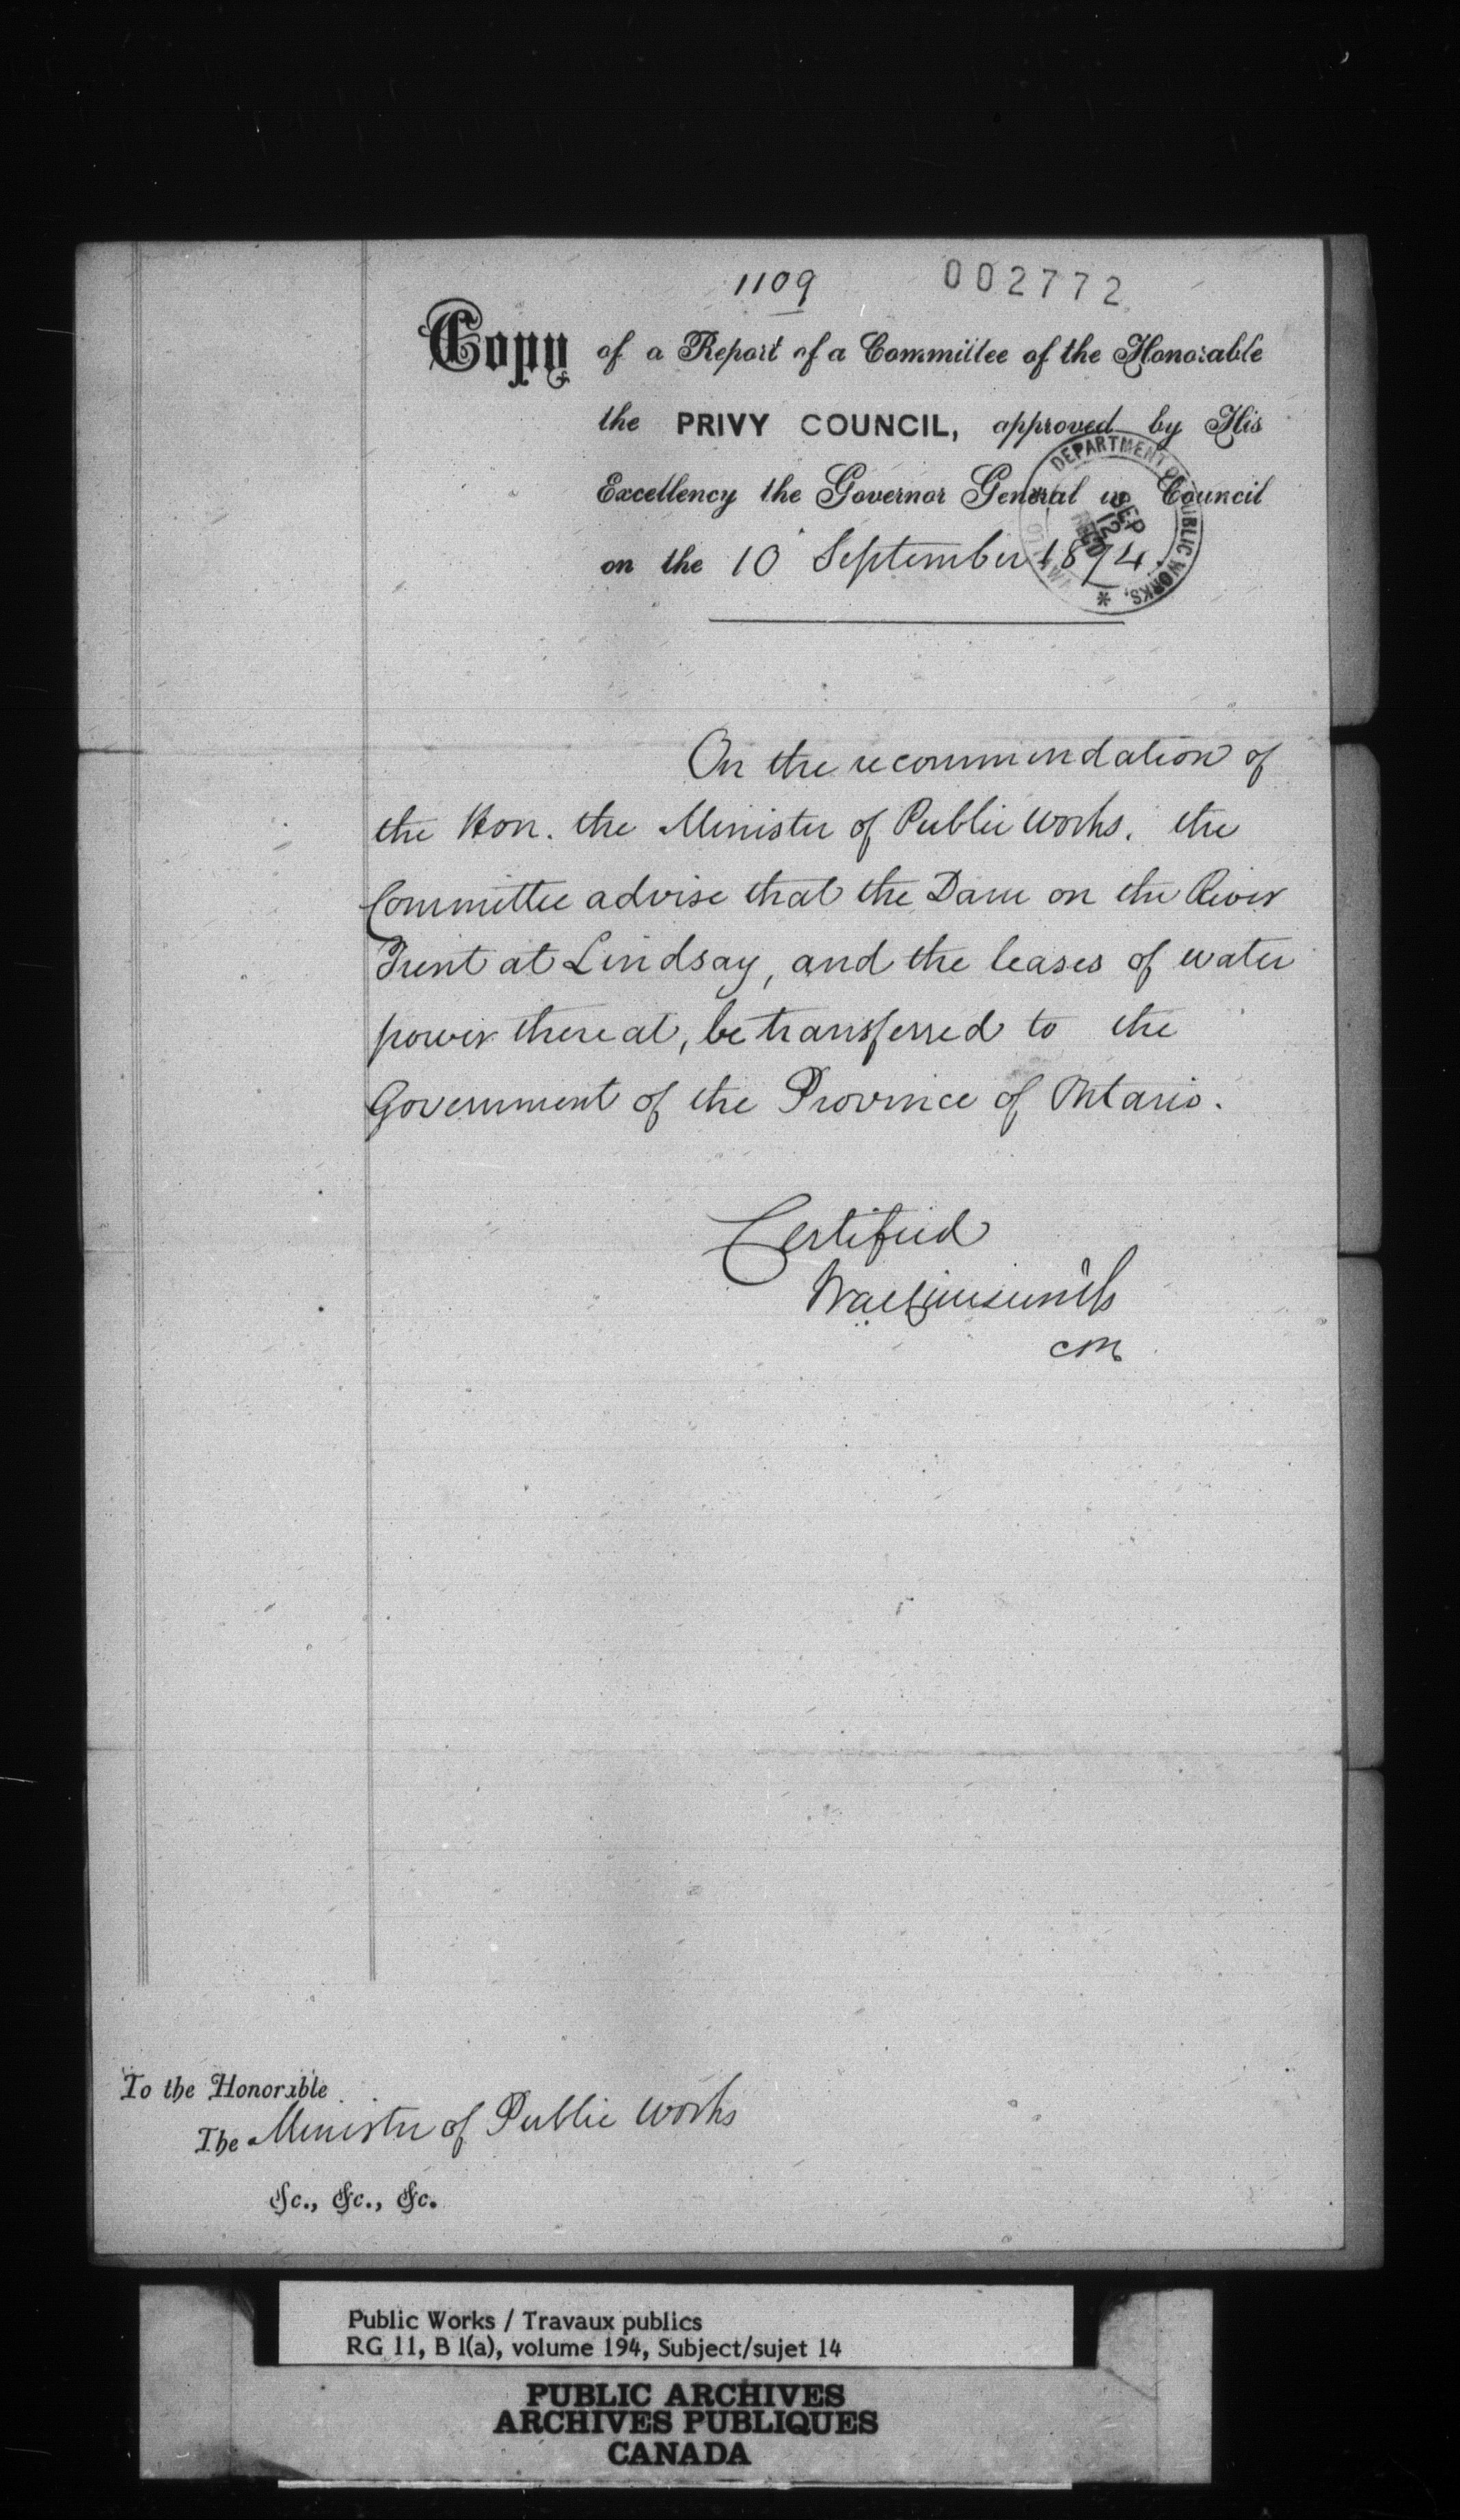 1109 002772
Copy of a Report of a Committee of the Honorable
the PRIVY COUNCIL, approved by His
Excellency the Governor General in Council
on the 10 September 1874.
DEPARTMENT OF PUBLIC WORKS,
SEP
12
On the recommendation of
the Hon. the Minister of Public Works. the
Committee advise that the Dam on the River
Trent at Lindsay, and the leases of water
power thereat, be transferred to the
Government of the Province of Ontario.
Certified
To the Honorable
The Minister of Public Works
&c., &c., &c.
Public Works / Travaux publics
RG 11, B 1(a), volume 194, Subject/sujet 14
PUBLIC ARCHIVES
ARCHIVES PUBLIQUES
CANADA